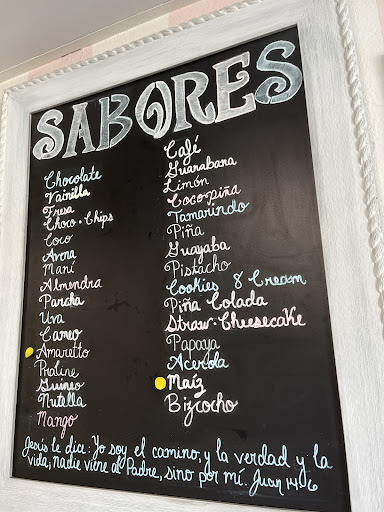 SABORES
Chocolate
Vainilla
Fresa
Choco-Chips
Coco
Avena
Maní
Almendra
Parcha
Uva
Cameo
Amaretto
Praline
Guineo
Nutella
Mango
Café
Guanabana
Limón
Cocopiña
Tamarindo
Piña
Guayaba
Pistacho
Cookies & Cream
Piña Colada
Straw-Cheesecake
Papaya
Acerola
Maíz
Bizcocho
Jesús le dice: Yo soy el camino, y la verdad y la
vida, nadie viene al Padre, sino por mí. Juan 14:6